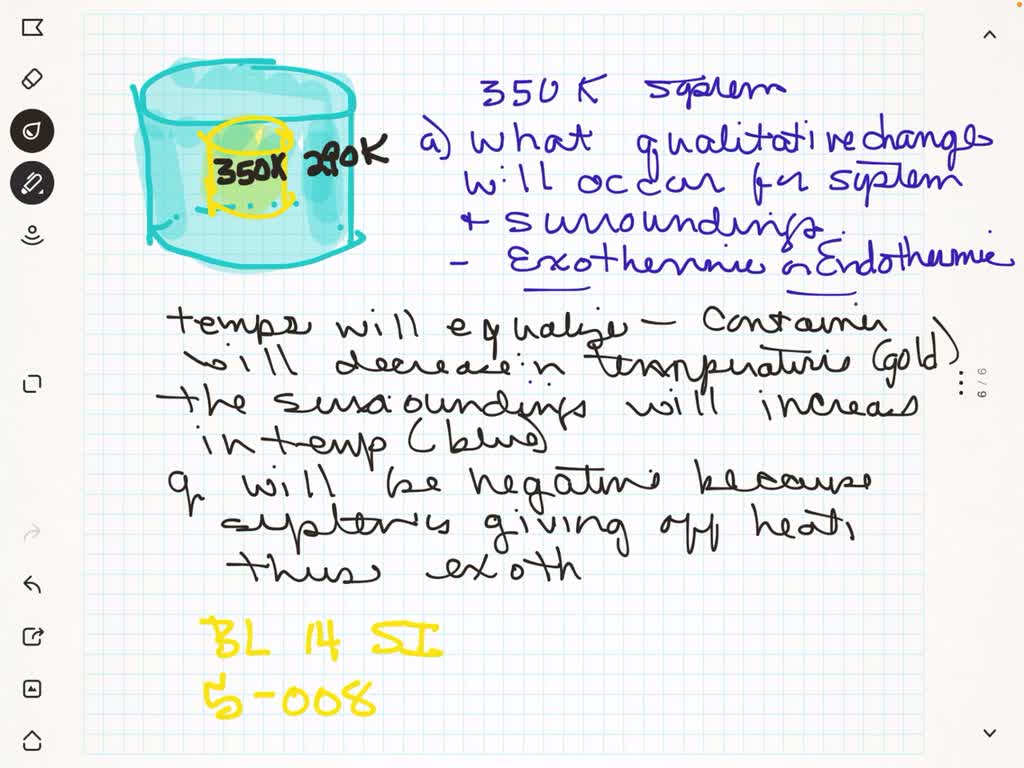 350K 290K
350 K system
a) What qualitative changes
will occur for system
+ surroundings.
- Exothermic or Endothermic
temps will equalize - Container
will decrease in temperature (gold)
the surroundings will increas
in temp (blue)
q will be negative because
system is giving off heat,
thus exoth
BL 14 SI
5-008
9/9